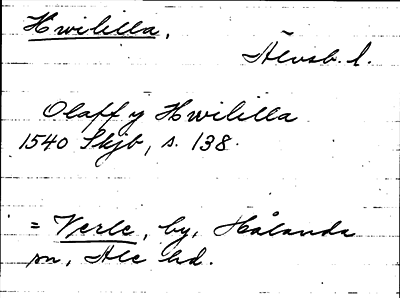 Hwililla,
Älvsb. l.
Olaff y Hwililla
1540 Skjb, s. 138.
= Verle, by, Hålanda
sn, Ale hd.